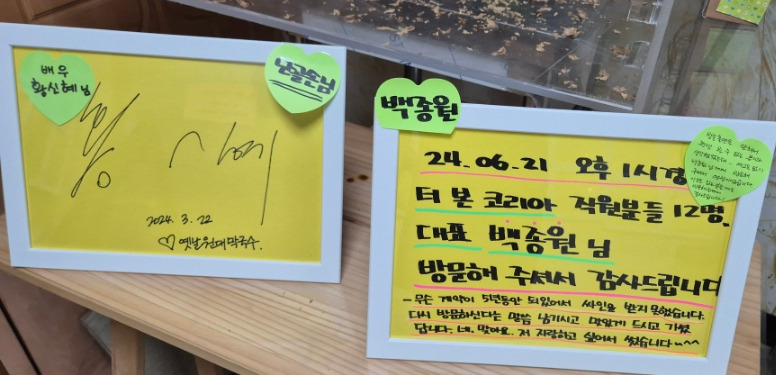 배우
황신혜 님
단골손님
황 시혜
2024. 3. 22
♡옛날원대막국수.
백종원
24. 06. 21 오후 1시경
더 본 코리아 직원분들 12명.
대표 백종원 님
방문해 주셔서 감사드립니다
- 무슨 계약이 5년동안 되있어서 싸인을 받지 못했습니다.
다시 방문하신다는 말씀 남기시고 맛있게 드시고 가셨
답니다. 네. 맞아요. 저 자랑하고 싶어서 썼습니다~^^